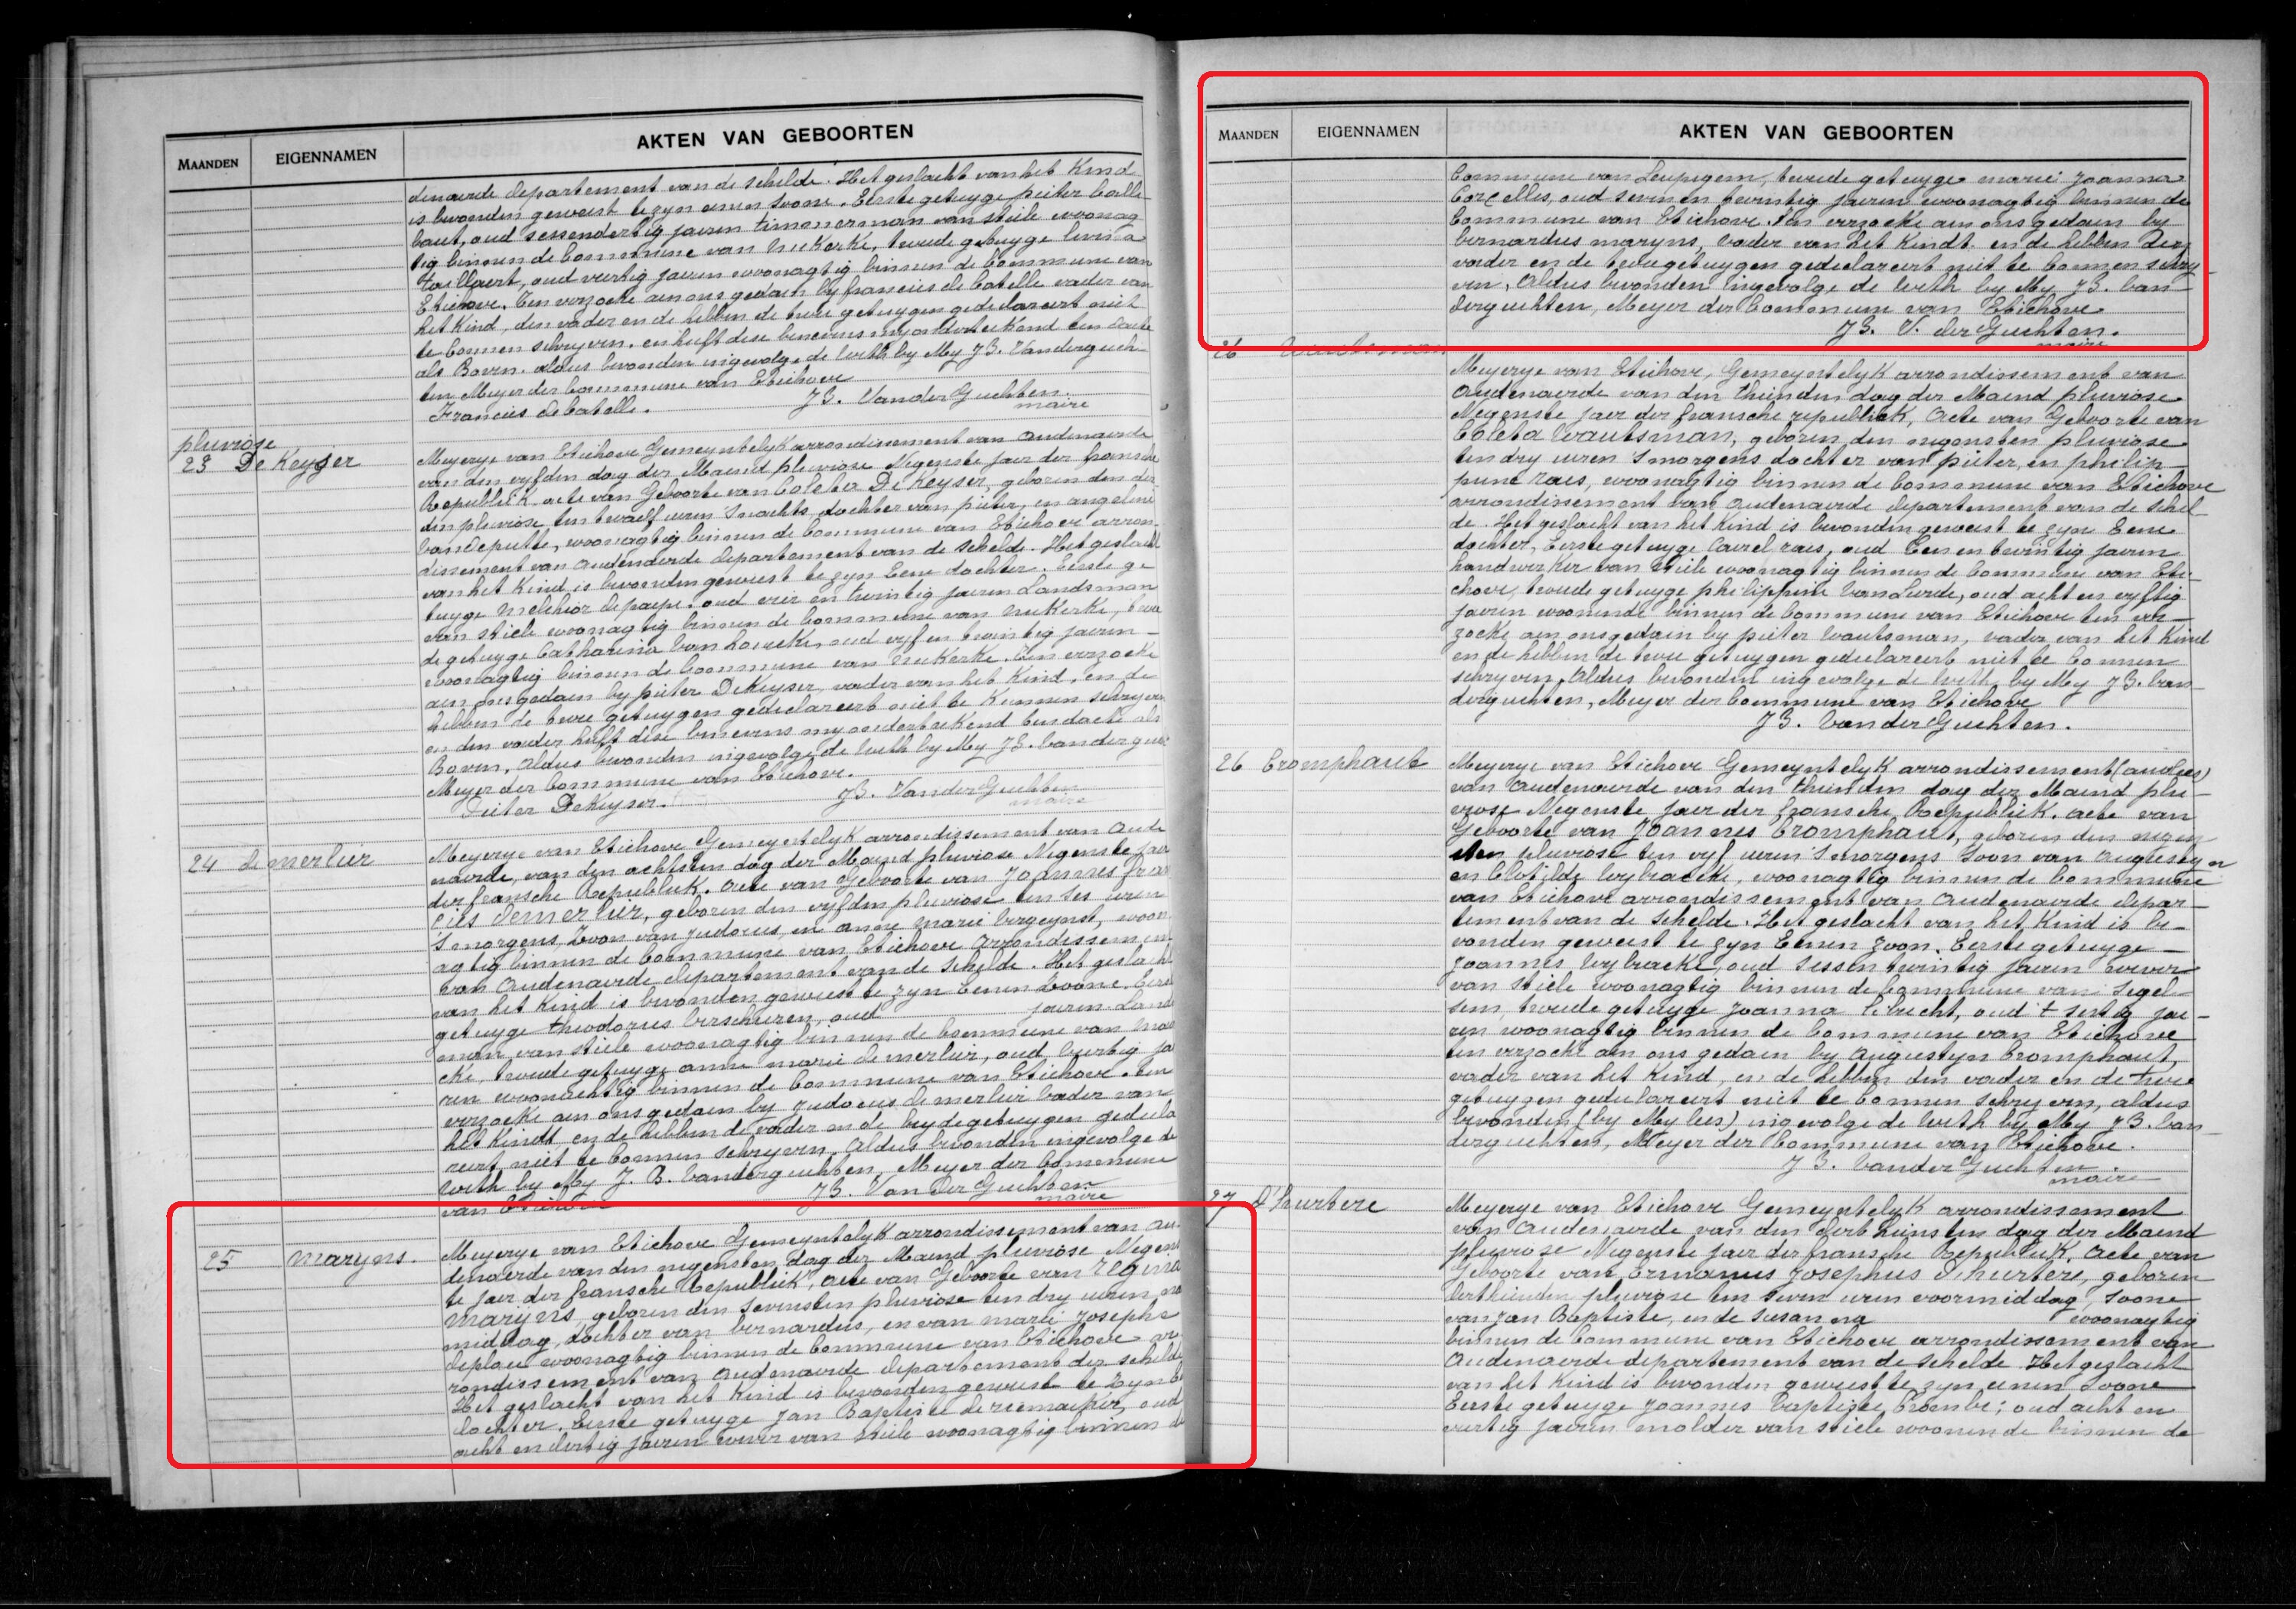 AKTEN VAN GEBOORTEN
MAANDEN EIGENNAMEN
denaerde departement van de schelde. Het geslacht van het Kind
is bevonden geweest te zyn eenen soone. Eerste getuyge pieter Calle-
baut, oud sessendertig jaeren timmerman van stiele woonag
tig binnen de Commune van Nukerke, tweede getuyge
oud veertig jaeren woonagtig binnen de Commune van
Etichove. Ten verzoeke aen ons gedaen by francies de Catelle vader van
het Kind, den vader en de hebben de twee getuygen gedeclareert niet
te connen schryven. en heeft dese benevens my onderteekend ten daete
als Boven. aldus bevonden ingevolge de Weth by My J B. Vanderguch-
ten Meyer der Commune van Etichove
Francies de Catelle. J B. Van der Guchten.
maire
pluviose
23 De Keyser
Meyerye van Etichove Gemeyntelyk arrondissement van audenaerde
van den vyfden dag der Maend pluviose Negenste jaer der fransche
Republiek acte van Geboorte van Coleta De Keyser, geboren den der
den pluviose ten twaelf uren s'nachts dochter van pieter, en angeline
Vandeputte, woonagtig binnen de Commune van Etichove arron-
dissement van audenaerde departement van de schelde. Het geslacht
van het Kind is bevonden geweest te zyn Eene dochter. Eerste ge
tuyge Melchior depaepe. oud vier en twintig jaeren Landsman
van stiele woonagtig binnen de Commune van Nukerke, twee
de getuyge Catharina Van hoecke, oud vyf en twintig jaeren
woonagtig binnen de Commune van Nukerke. Ten verzoeke
aen ons gedaen by pieter DeKeyser, vader van het Kind, en de
hebben de twee getuygen gedeclareert niet te Kunnen schryven
en den vader heeft dese benevens my onderteekend ten daete als
Boven, Aldus bevonden ingevolge de Weth by My J B. Vanderguch
Meyer der Commune van Etichove.
Pieter DeKeyser. J B. Van der Guchten
maire
24 demerlier
Meyerye van Etichove Gemeyntelyk arrondissement van aude
naerde, van den achtsten dag der Maend pluviose Negenste jaer
der fransche Republiek. acte van Geboorte van Joannes fran
cies Demerlier, geboren den vyfden pluviose ten ses uren
s'morgens, Zoon van judocus, en anne marie vergeynst, woon
agtig binnen de Commune van Etichove arrondissement
van audenaerde departement van de schelde. Het geslacht
van het Kind is bevonden geweest te zyn Eenen Zoone. Eerste
getuyge theodorus verschuren, oud jaeren Lands
man van stiele woonagtig binnen de Commune van
cke, tweede getuyge anne marie demerlier, oud veertig ja
ren woonachtig binnen de Commune van Etichove. ten
verzoeke aen ons gedaen by judocus demerlier vader van
het Kindt, en de hebben de vader en de beyde getuygen gedecla
reert niet te connen schryven. Aldus bevonden ingevolge de
Weth by My J. B. Vanderguchten, Meyer der Commune
van Etichove J B. Van der Guchten
maire
25 Maryns.
Meyerye van Etichove Gemeyntelyk arrondissement van au-
denaerde van den negensten dag der Maend pluviose Negens
te jaer der fransche Republiek, acte van Geboorte van Regina
Maryns, geboren den sevensten pluviose ten dry uren na
middag, dochter van bernardus, en van marie Josephe
deplae woonagtig binnen de Commune van Etichove ar
rondissement van audenaerde departement der schelde
Het geslacht van het Kind is bevonden geweest te Zyn
dochter. Eerste getuyge Jan Baptiste deriemaeker, oud
acht en dertig jaeren wever van stiele woonagtig binnen de
MAANDEN EIGENNAMEN AKTEN VAN GEBOORTEN
Commune van Leupegem, tweede getuyge marie Joanna
Corcelles, oud seven en twintig jaeren woonagtig binnen de
Commune van Etichove. Ten verzoeke aen ons gedaen by
bernardus maryns, vader van het Kindt en de hebben den
vader en de twee getuygen gedeclareert niet te connen schry-
ven, Aldus bevonden ingevolge de Weth by My J B. Van-
derguchten, Meyer der Commune van Etichove
J B. V. der Guchten.
maire
26 Wautsman
Meyerye van Etichove, Gemeyntelyk arrondissement van
Audenaerde van den thienden dag der Maend pluviose
Negenste jaer der fransche republiek, Acte van Geboorte van
Coleta Wautsman, geboren den negensten pluviose
ten dry uren s'morgens dochter van pieter, en philip-
pine raes, woonagtig binnen de Commune van Etichove
arrondissement van audenaerde departement van de schel-
de. Het geslacht van het Kind is bevonden geweest te zyn Eene
dochter, Eerste getuyge Carel raes, oud Een en twintig jaeren
handwerker van stiele woonagtig binnen de Commune van Eti-
chove, tweede getuyge philippine Vandurde, oud acht en vyftig
jaeren woonende binnen de Commune van Etichove ten ver-
zoeke aen ons gedaen by pieter Wautsman, vader van het Kind
en de hebben de twee getuygen gedeclareert niet te connen
schryven, Aldus bevonden ingevolge de Weth by My J B. Van-
derguchten, Meyer der Commune van Etichove
J B. Van der Guchten.
26 Cromphaut
Meyerye van Etichove Gemeyntelyk arrondissement (audees)
van Audenaerde van den thienden dag der Maend plu-
viose Negenste jaer der fransche Republiek. acte van
Geboorte van Joannes Cromphaut, geboren den negen
sten pluviose ten vyf uren s'morgens Soon van Augustyn
en Clotilde Wybraecke, woonagtig binnen de Commune
van Etichove arrondissement van audenaerde depar-
tement van de schelde. Het geslacht van het Kind is be-
vonden geweest te zyn Eenen zoon. Eerste getuyge
Joannes Wybracke, oud sessentwintig jaeren wever
van stiele woonagtig binnen de Commune van Segel-
sem, tweede getuyge Joanna Librecht, oud t sestig jae-
ren woonagtig binnen de Commune van Etichove
ten verzoeke aen ons gedaen by Augustyn Cromphaut,
vader van het Kind, en de hebben den vader en de twee
getuygen gedeclareert niet te connen schryven, aldus
bevonden (by My lees) ingevolge de Weth by My J B. Van-
derguchten, Meyer der Commune van Etichove.
J B. Van der Guchten.
maire
27 D'hurtere
Meyerye van Etichove Gemeyntelyk arrondissement
van Audenaerde van den derthiensten dag der Maend
pluviose Negenste jaer der fransche Republiek, Acte van
Geboorte van Ermanus Josephus Dhurtere, geboren
derthienden pluviose ten seven uren voormiddag, Soone
van Jan Baptiste, en de Susanna woonagtig
binnen de Commune van Etichove arrondissement van
Audenaerde departement van de schelde Het geslacht
van het Kind is bevonden geweest te zyn eenen Soone
Eerste getuyge Joannes baptiste Crombe; oud acht en
veertig jaeren molder van stiele woonende binnen de